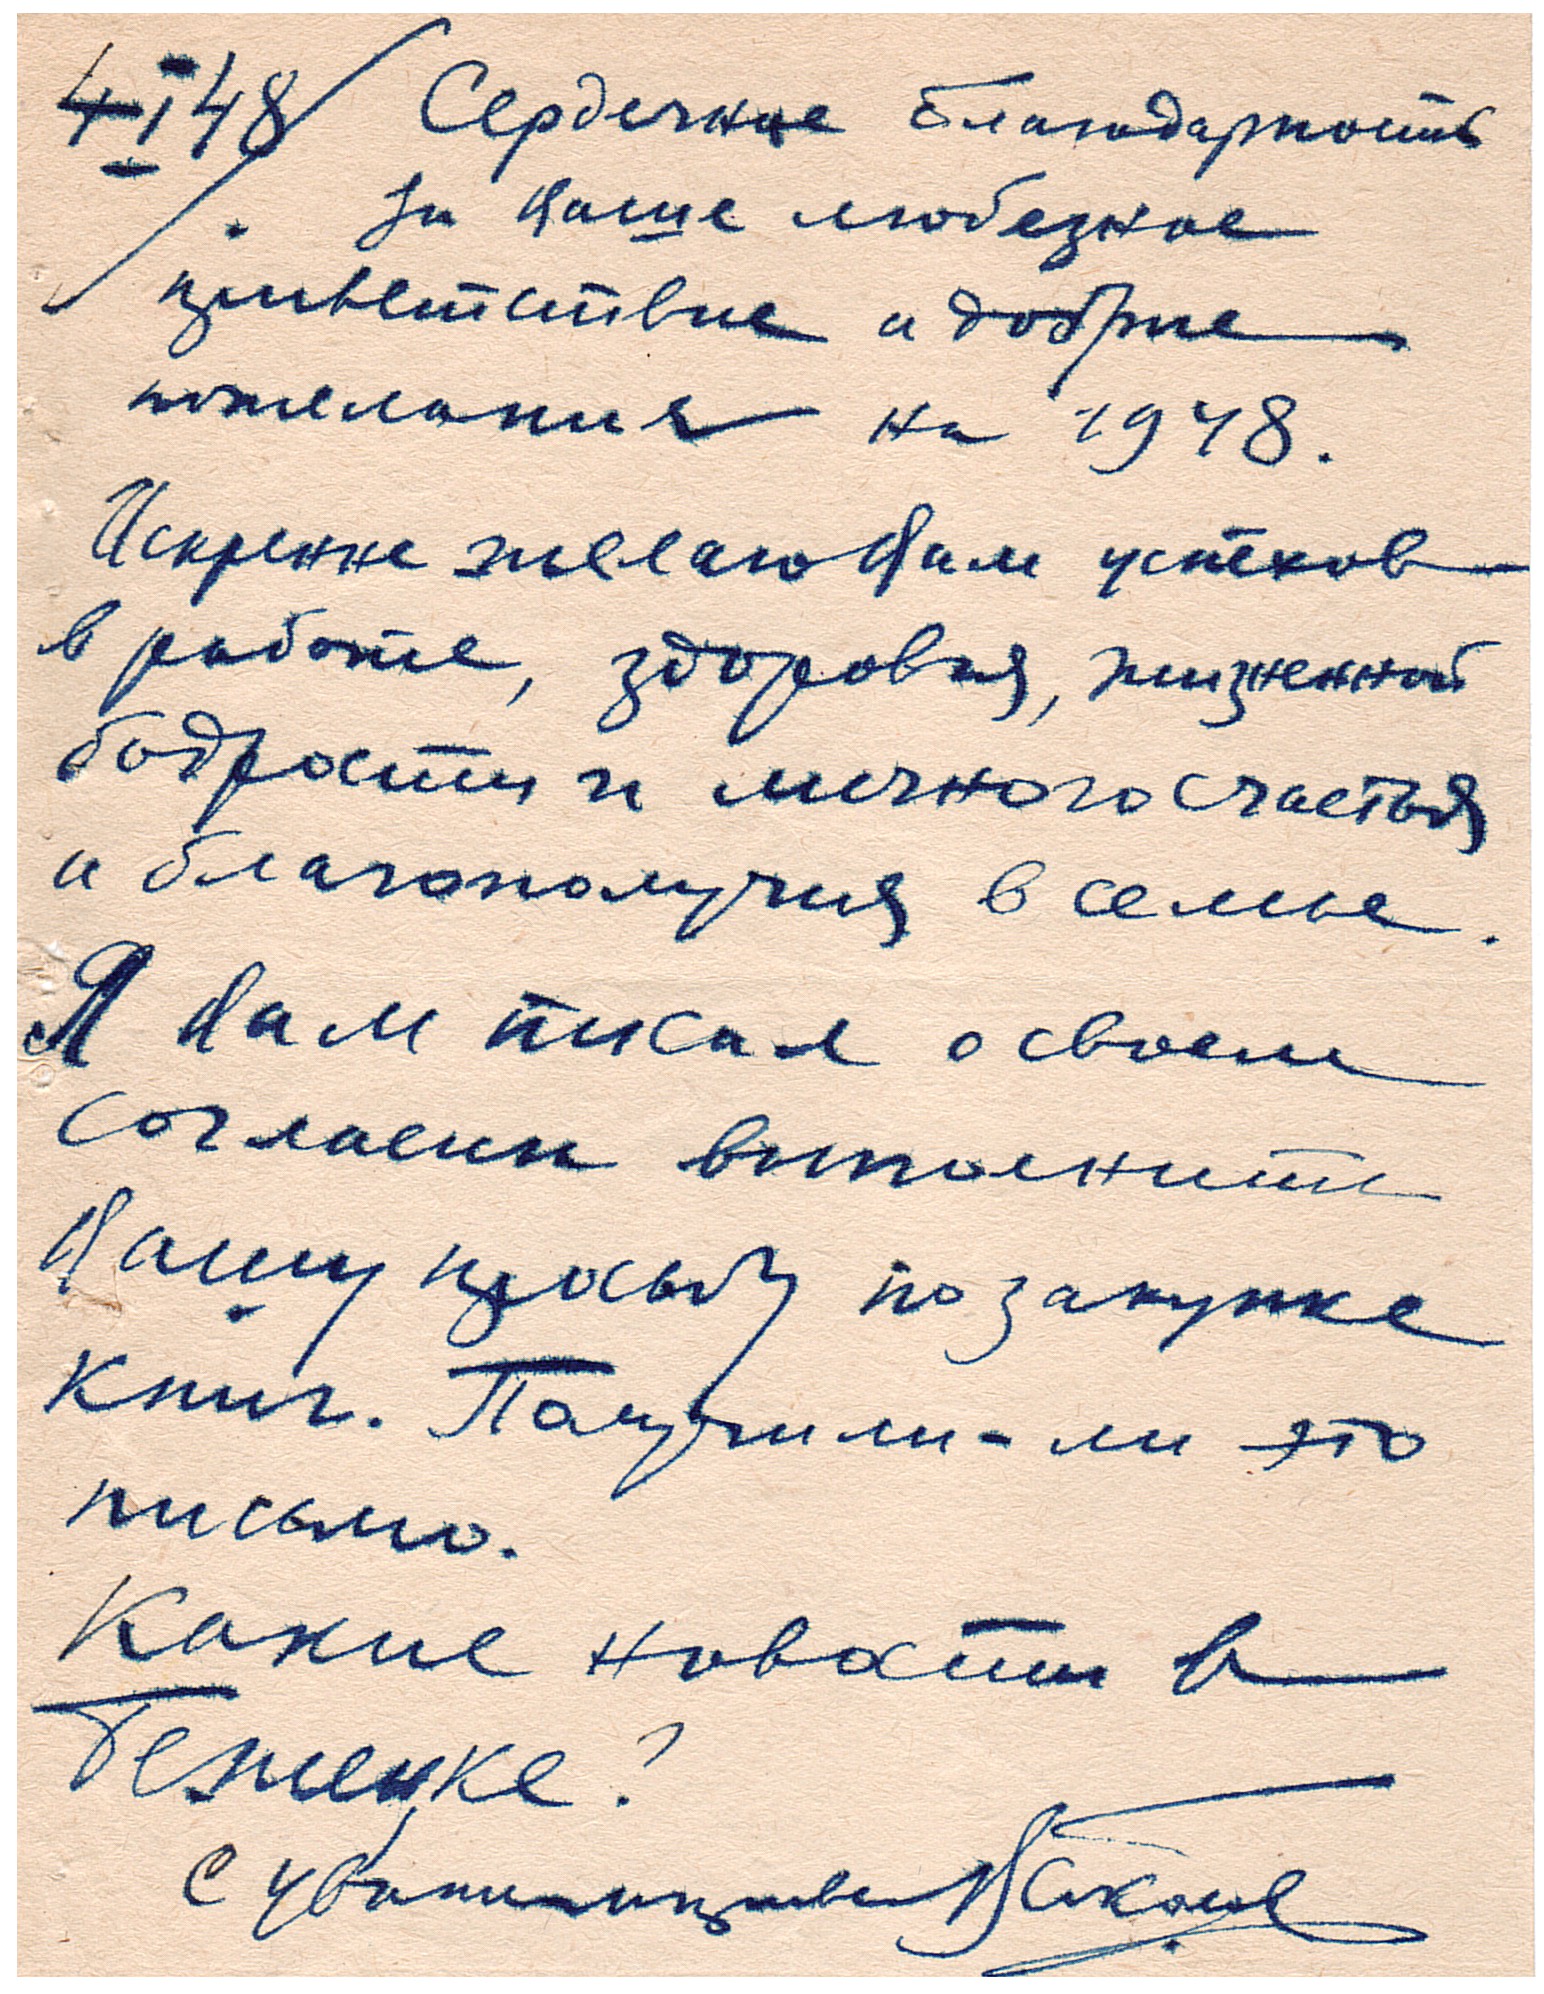 4 I 48 Сердечное благодарность
за Ваше любезное
приветствие и добрые
пожелания на 1948.
Искренне желаю Вам успехов
в работе, здоровья, жизненной
бодрости и личного счастья
и благополучия в семье.
Я Вам писал о своем
согласии выполнить
Вашу просьбу по закупке
книг. Получили-ли это
письмо.
Какие новости в
Бежице?
С уважением